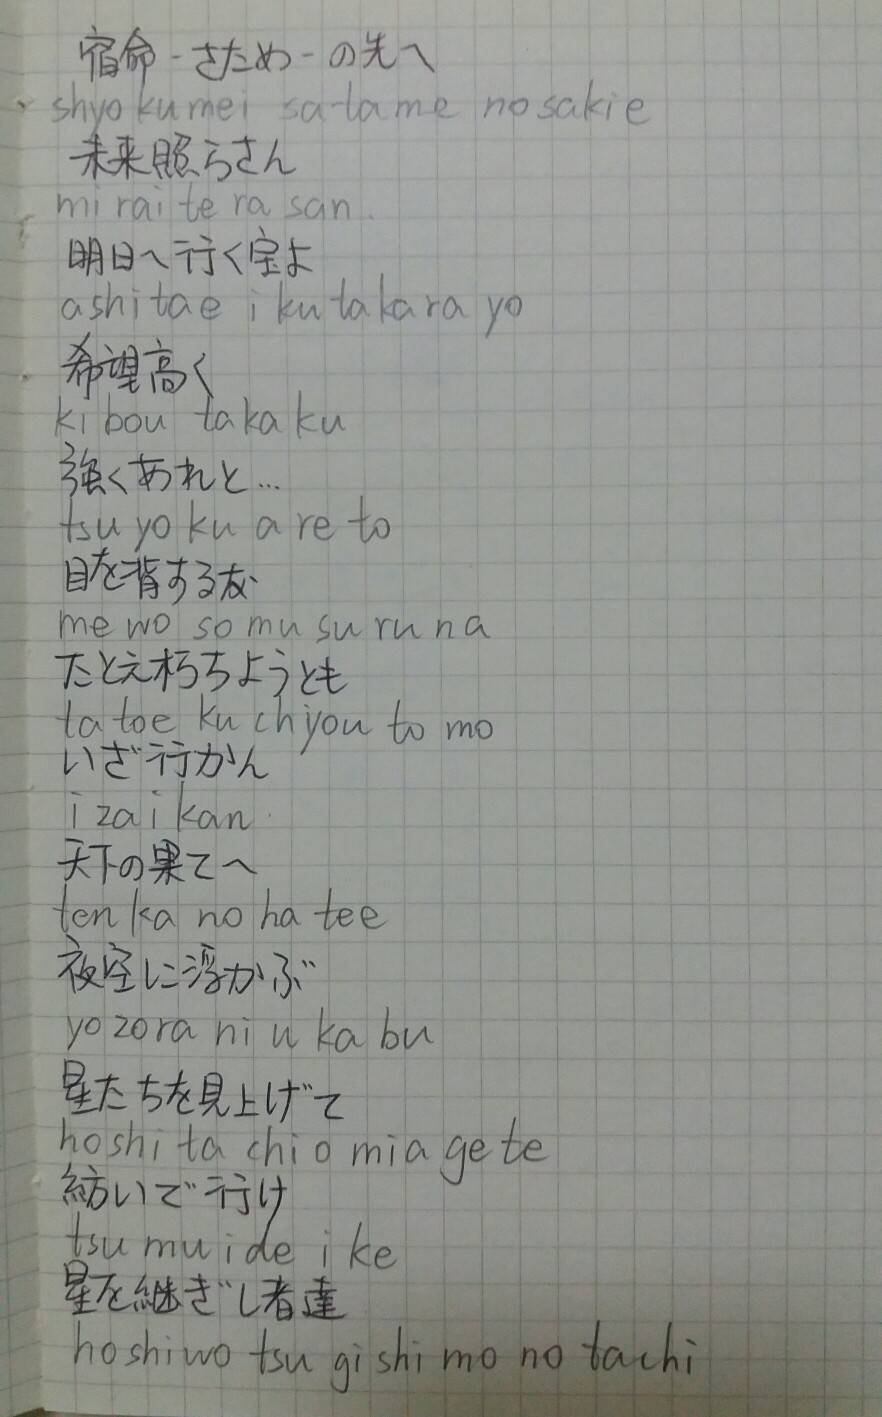 宿命-さため-の先へ
shyokumei satame nosakie
未来照らさん
mirai terasan.
明日へ行く宝よ
ashitae ikutakara yo
希望高く
kibou takaku
強くあれと…
tsuyoku are to
目を背するな
me wo somusuru na
たとえ朽ちようとも
tatoe kuchiyou to mo
いざ行かん
izaikan.
天下の果てへ
tenka no hatee
夜空に浮かぶ
yozora ni ukabu
星たちを見上げて
hoshitachi o miagete
紡いで行け
tsumuide ike
星を継ぎし者達
hoshiwo tsugishi mono tachi